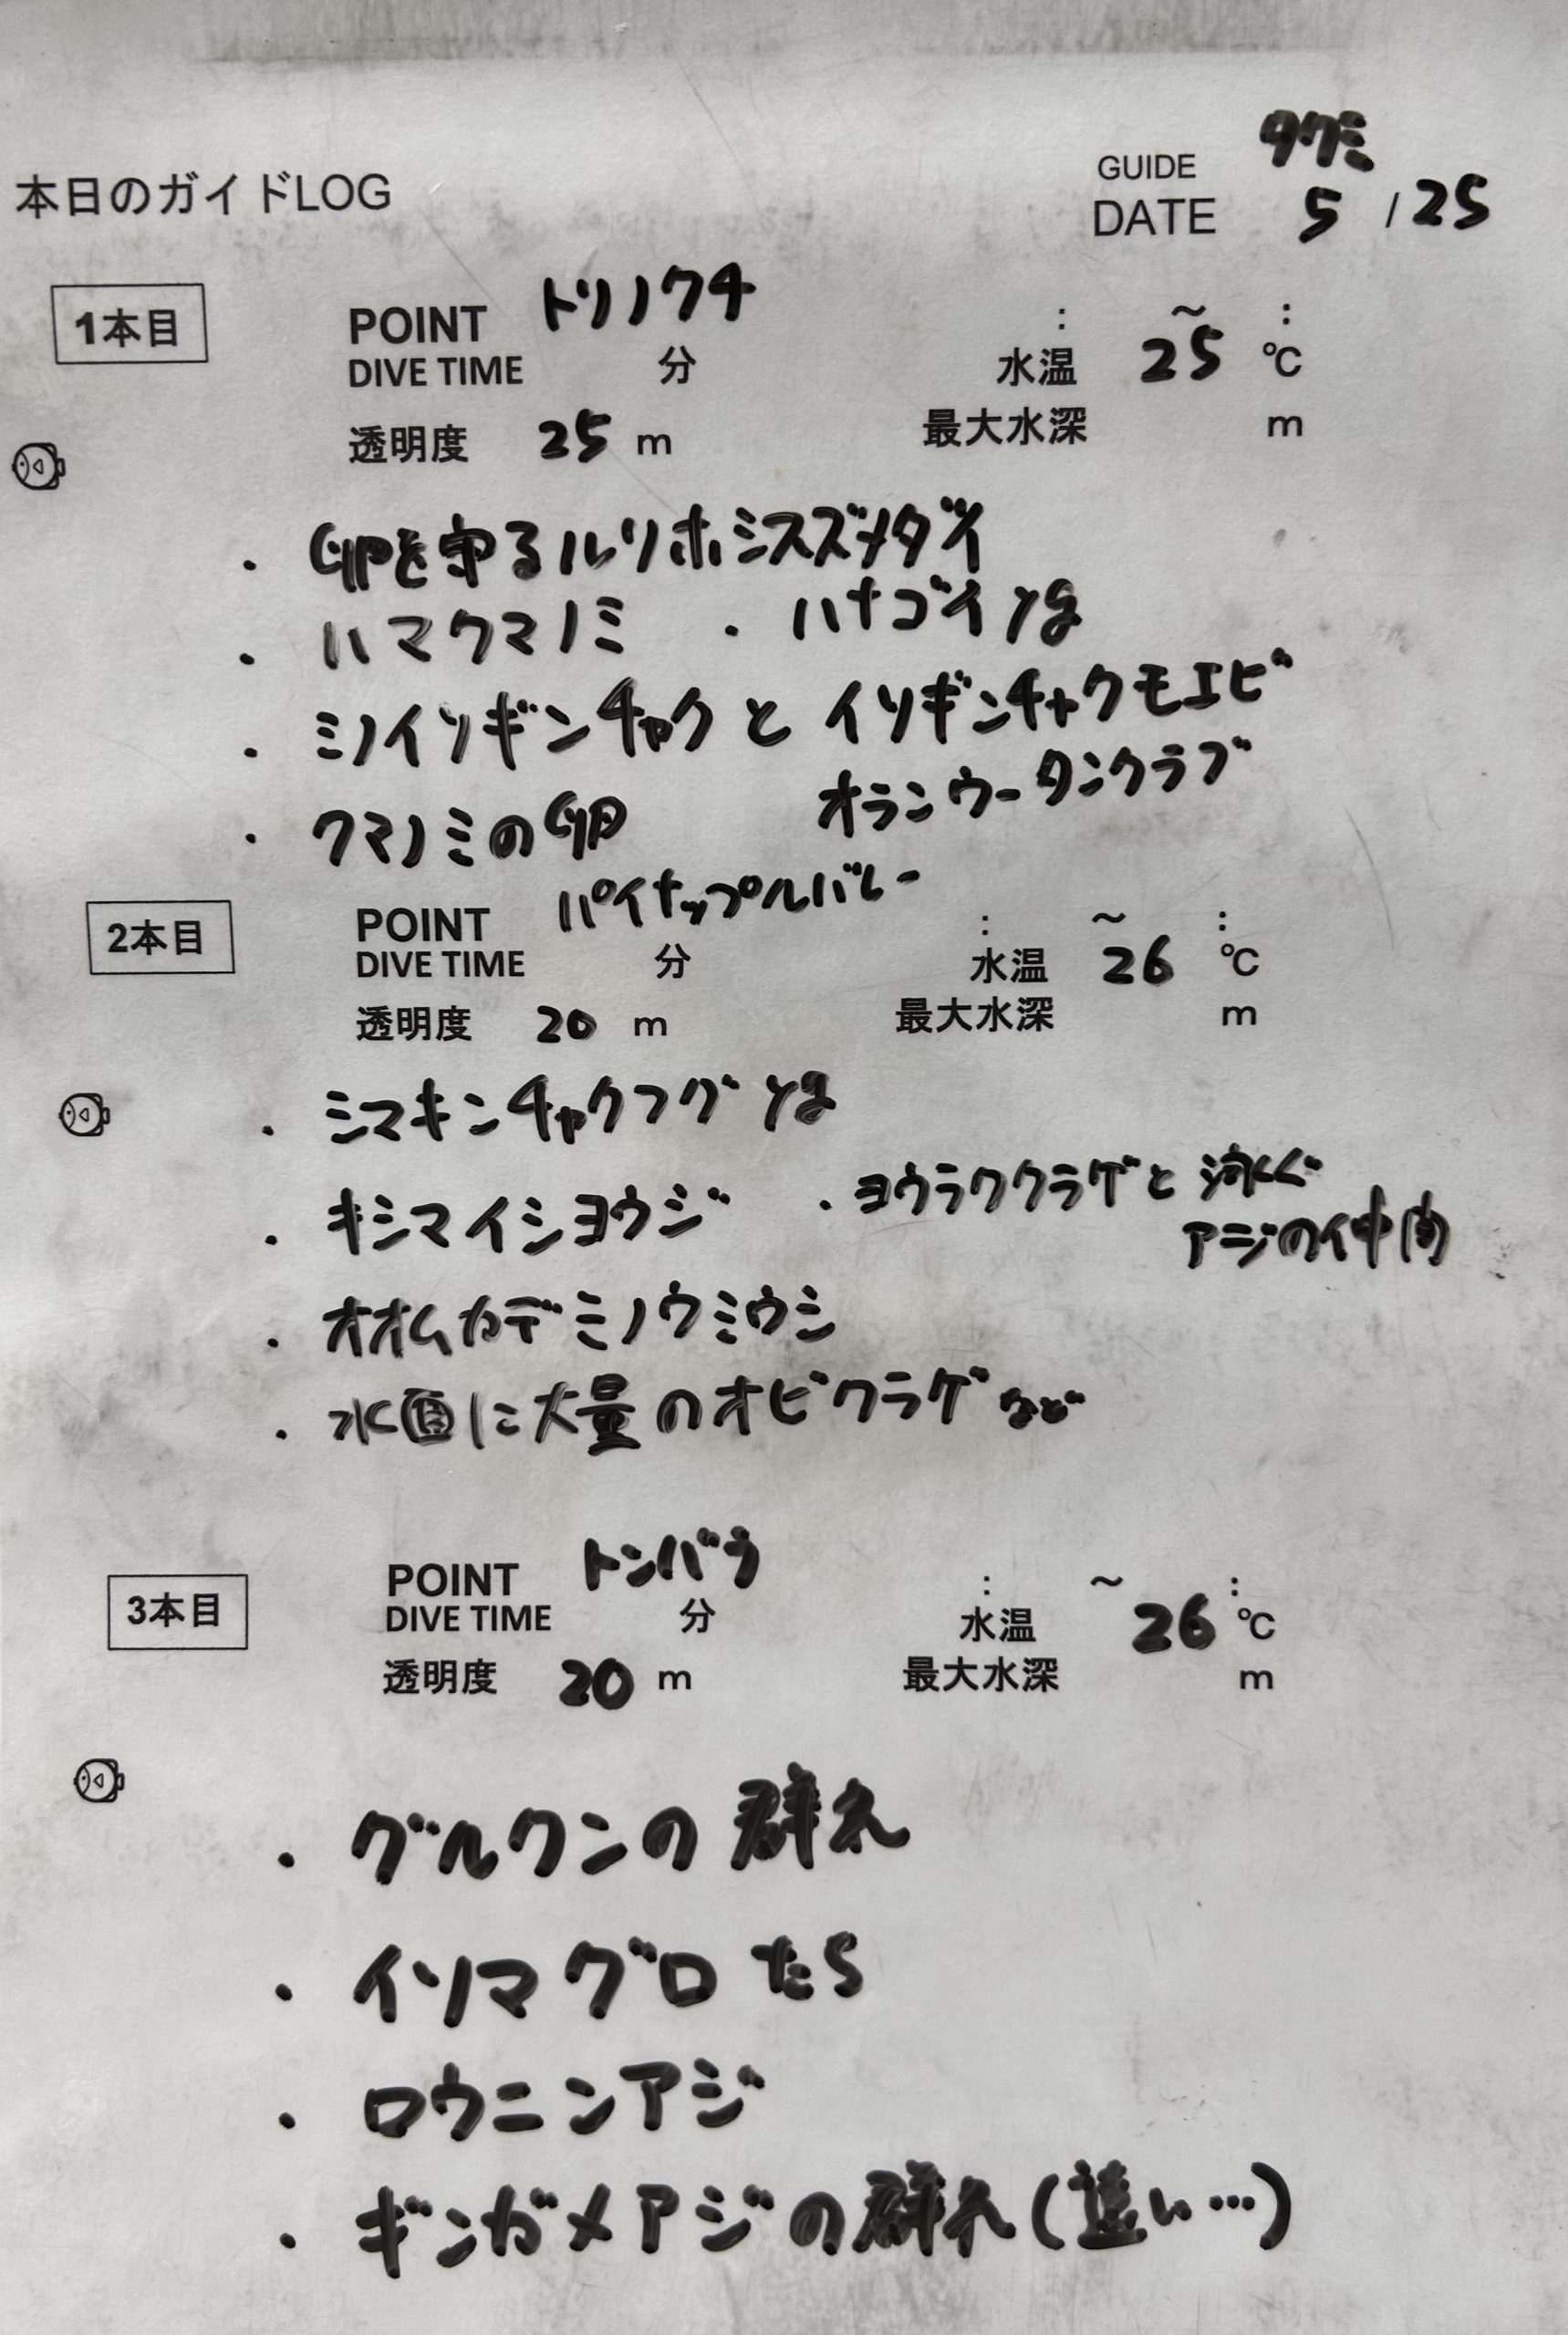 タクミ
本日のガイドLOG GUIDE
DATE 5 / 25
1本目 POINT トリノクチ : ～ :
DIVE TIME 分 水温 25 ℃
透明度 25 m 最大水深 m
・卵を守るルリホシスズメダイ
・ハマクマノミ ・ハナゴイyg
・ミノイソギンチャクとイソギンチャクモエビ
・クマノミの卵 オランウータンクラブ
2本目 POINT パイナップルバレー : ～ :
DIVE TIME 分 水温 26 ℃
透明度 20 m 最大水深 m
・シマキンチャクフグyg
・キシマイシヨウジ ・ヨウラククラゲと泳ぐ
アジの仲間
・オオムカデミノウミウシ
・水面に大量のオビクラゲなど
3本目 POINT トンバラ : ～ :
DIVE TIME 分 水温 26 ℃
透明度 20 m 最大水深 m
・グルクンの群れ
・イソマグロたち
・ロウニンアジ
・ギンガメアジの群れ(遠い…)